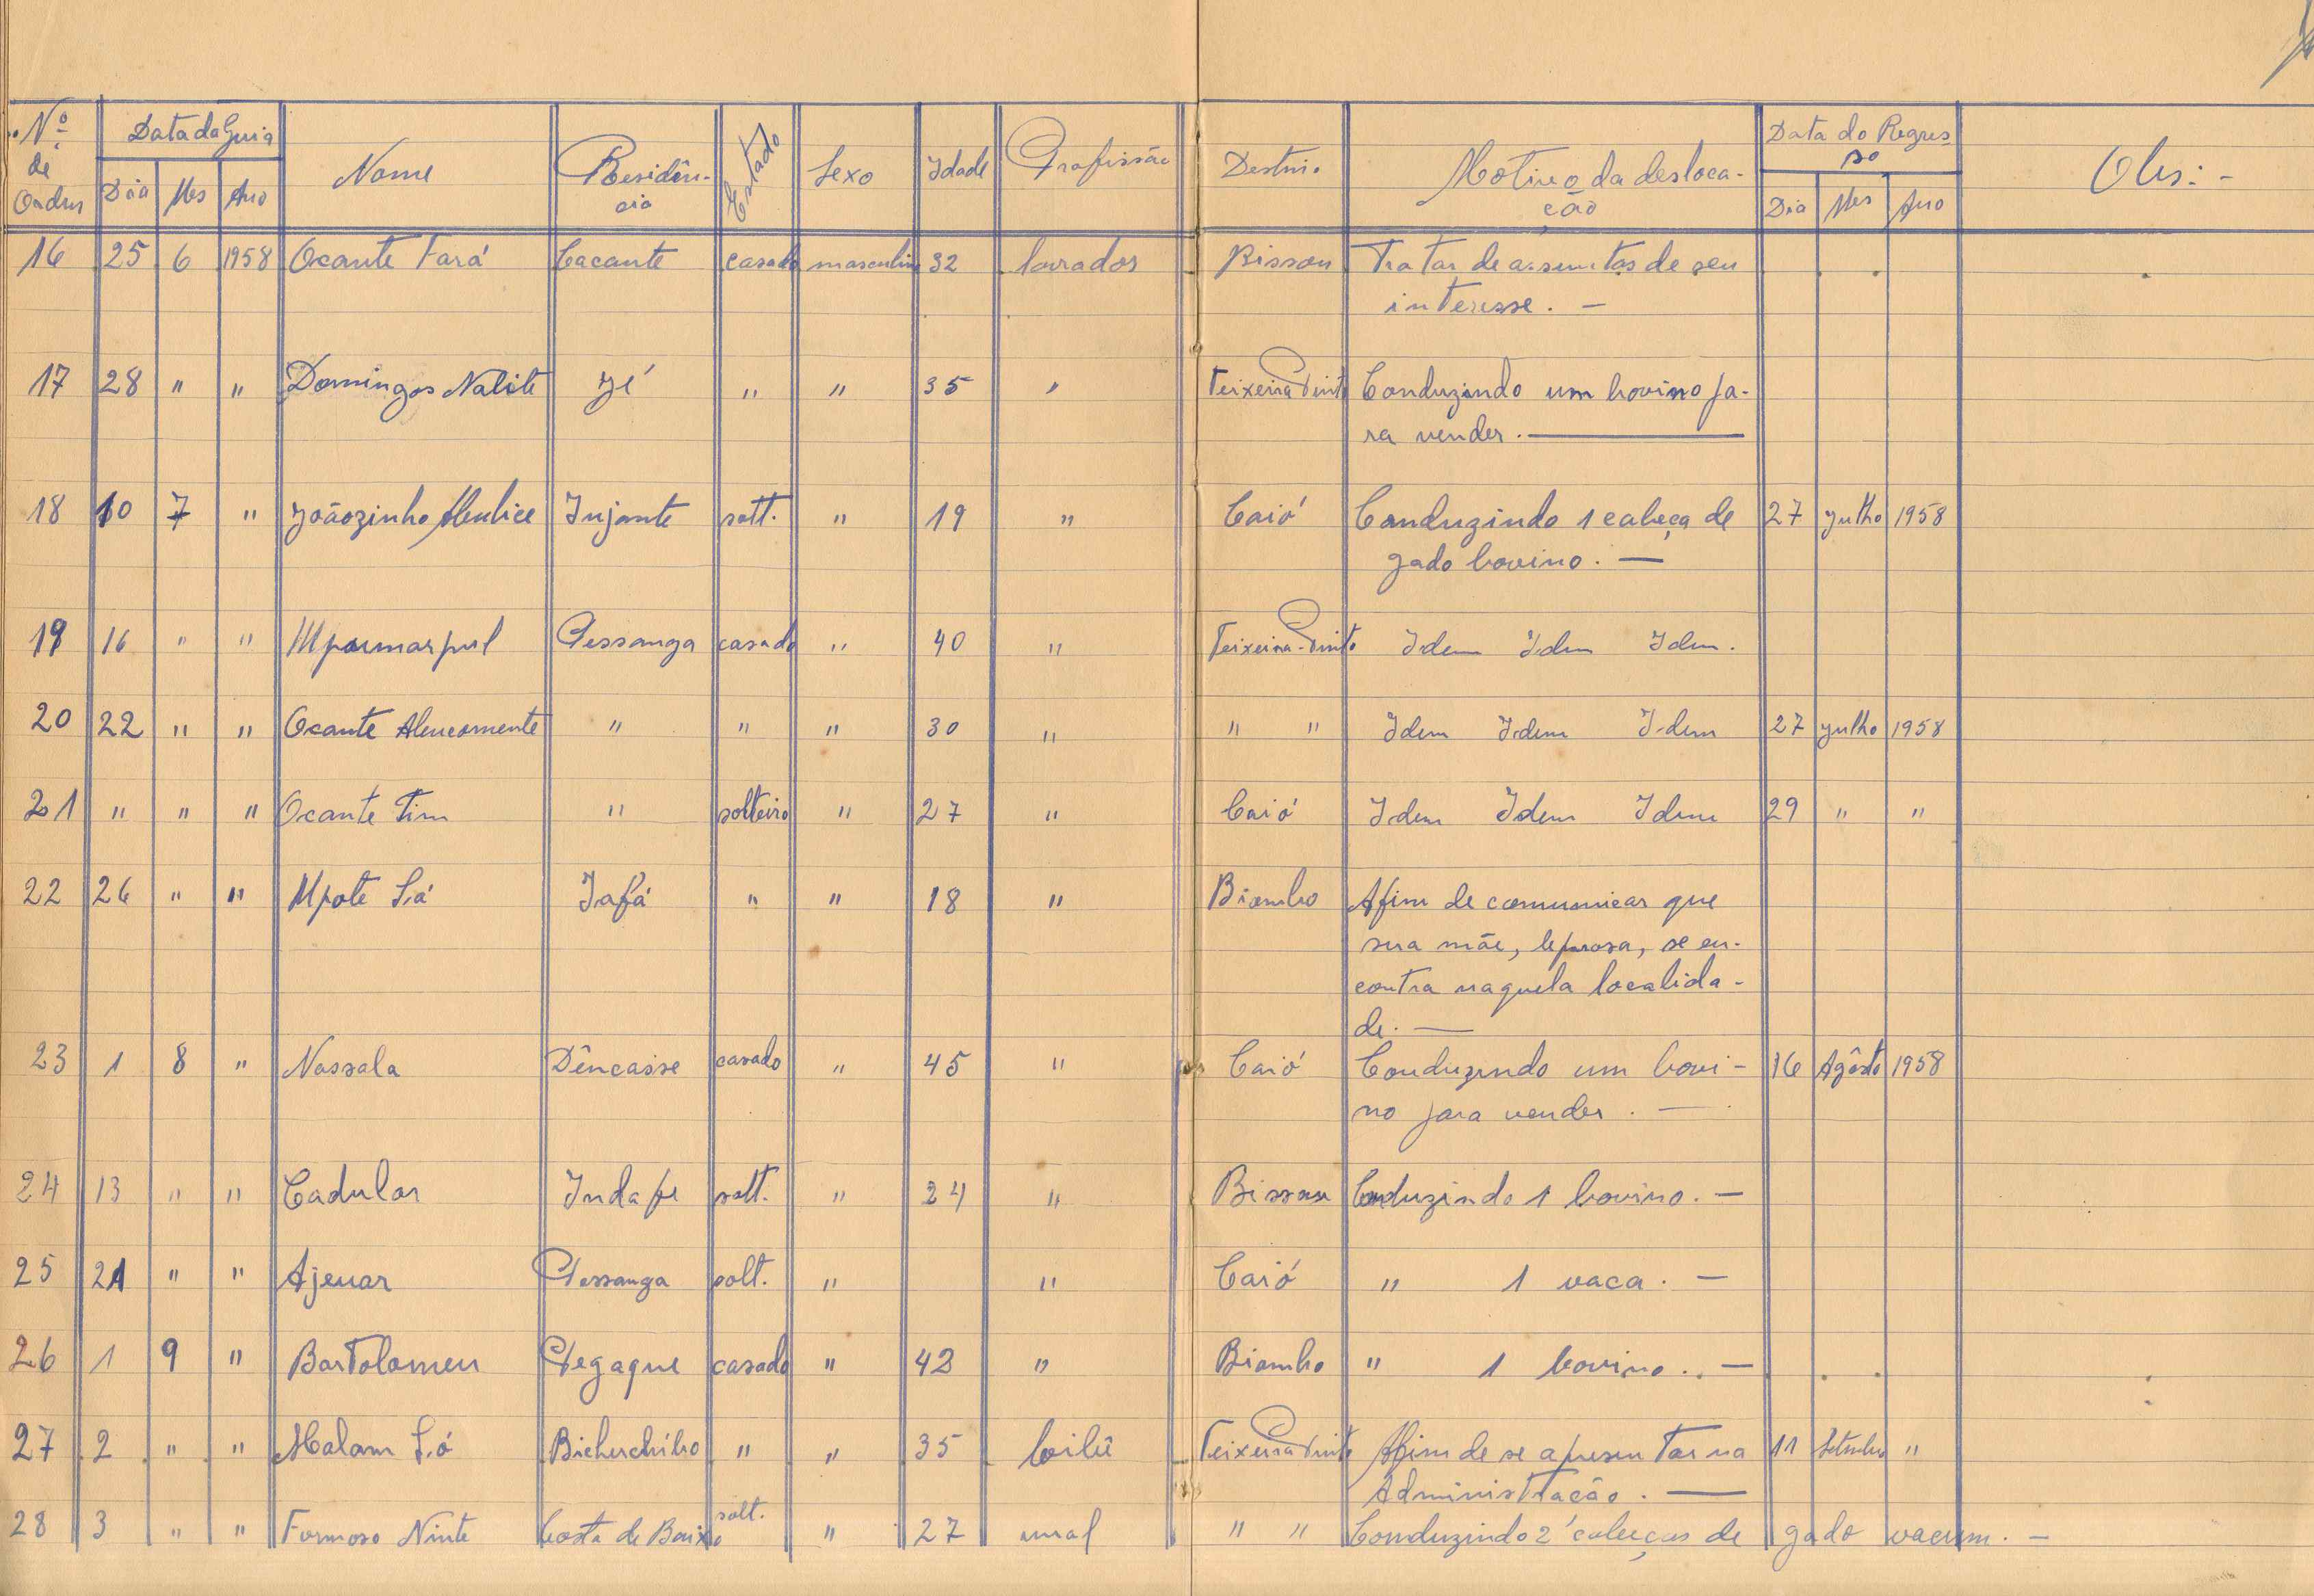 Nº de Ordem Data da Guia Nome Residência Estado Sexo Idade Profissão Destino Motivo da desloca- Data do Regres- Obs: -
Dia Mes Ano ção so
Dia Mes Ano
16 25 6 1958 Ocante Fará Cacante casado masculino 32 lavrador Bissau Tratar de assuntos de seu
interesse. —
17 28 " " Domingos Nalite Jé " " 35 " Teixeira Pinto Conduzindo um bovino pa-
ra vender. —
18 10 7 " Joãozinho Mulice Injante solt. " 19 " Caió Conduzindo 1 cabeça de 27 julho 1958
gado bovino. —
19 16 " " Mpaumarpul Pessanga casado " 40 " Teixeira-Pinto Idem Idem Idem.
20 22 " " Ocante " " " 30 " " " Idem Idem Idem 27 julho 1958
21 " " " Ocante Tim " solteiro " 27 " Caió Idem Idem Idem 29 " "
22 26 " " Mpote Sá Jafá " " 18 " Biombo Afim de comunicar que
sua mãe, leprosa, se en-
contra naquela localida-
de. —
23 1 8 " Nassala Dêncaisse casado " 45 " Caió Conduzindo um bovi- 16 Agôsto 1958
no para vender. —
24 13 " " Cadular Indafe solt. " 24 " Bissau Conduzindo 1 bovino. —
25 21 " " Ajenar Pessanga solt. " " Caió " 1 vaca. —
26 1 9 " Bartolomeu Pegaque casado " 42 " Biombo " 1 bovino. . —
27 2 " " Malam Só " " 35 Teixeira Pinto Afim de se apresentar na 11 Setembro "
Administração. —
28 3 " " Formoso Ninte Costa de Baixo solt. " 27 " " Conduzindo 2 cabeças de gado vacum. —